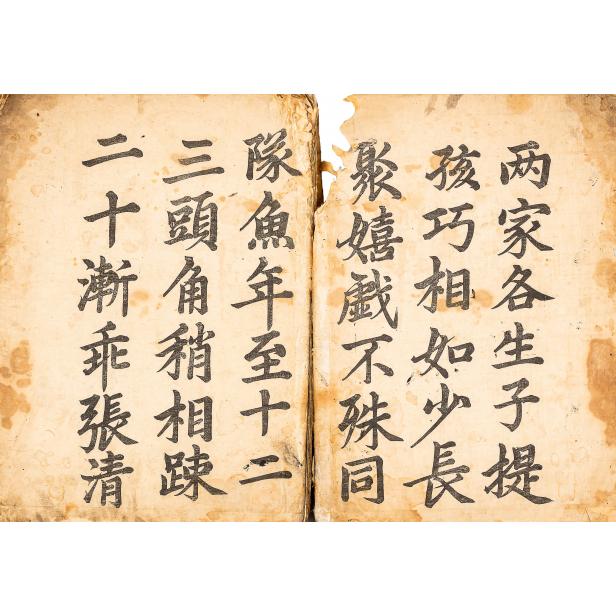 两家各生子提
孩巧相如少長
聚嬉戯不殊同
隊魚年至十二
三頭角稍相踈
二十漸乖張清